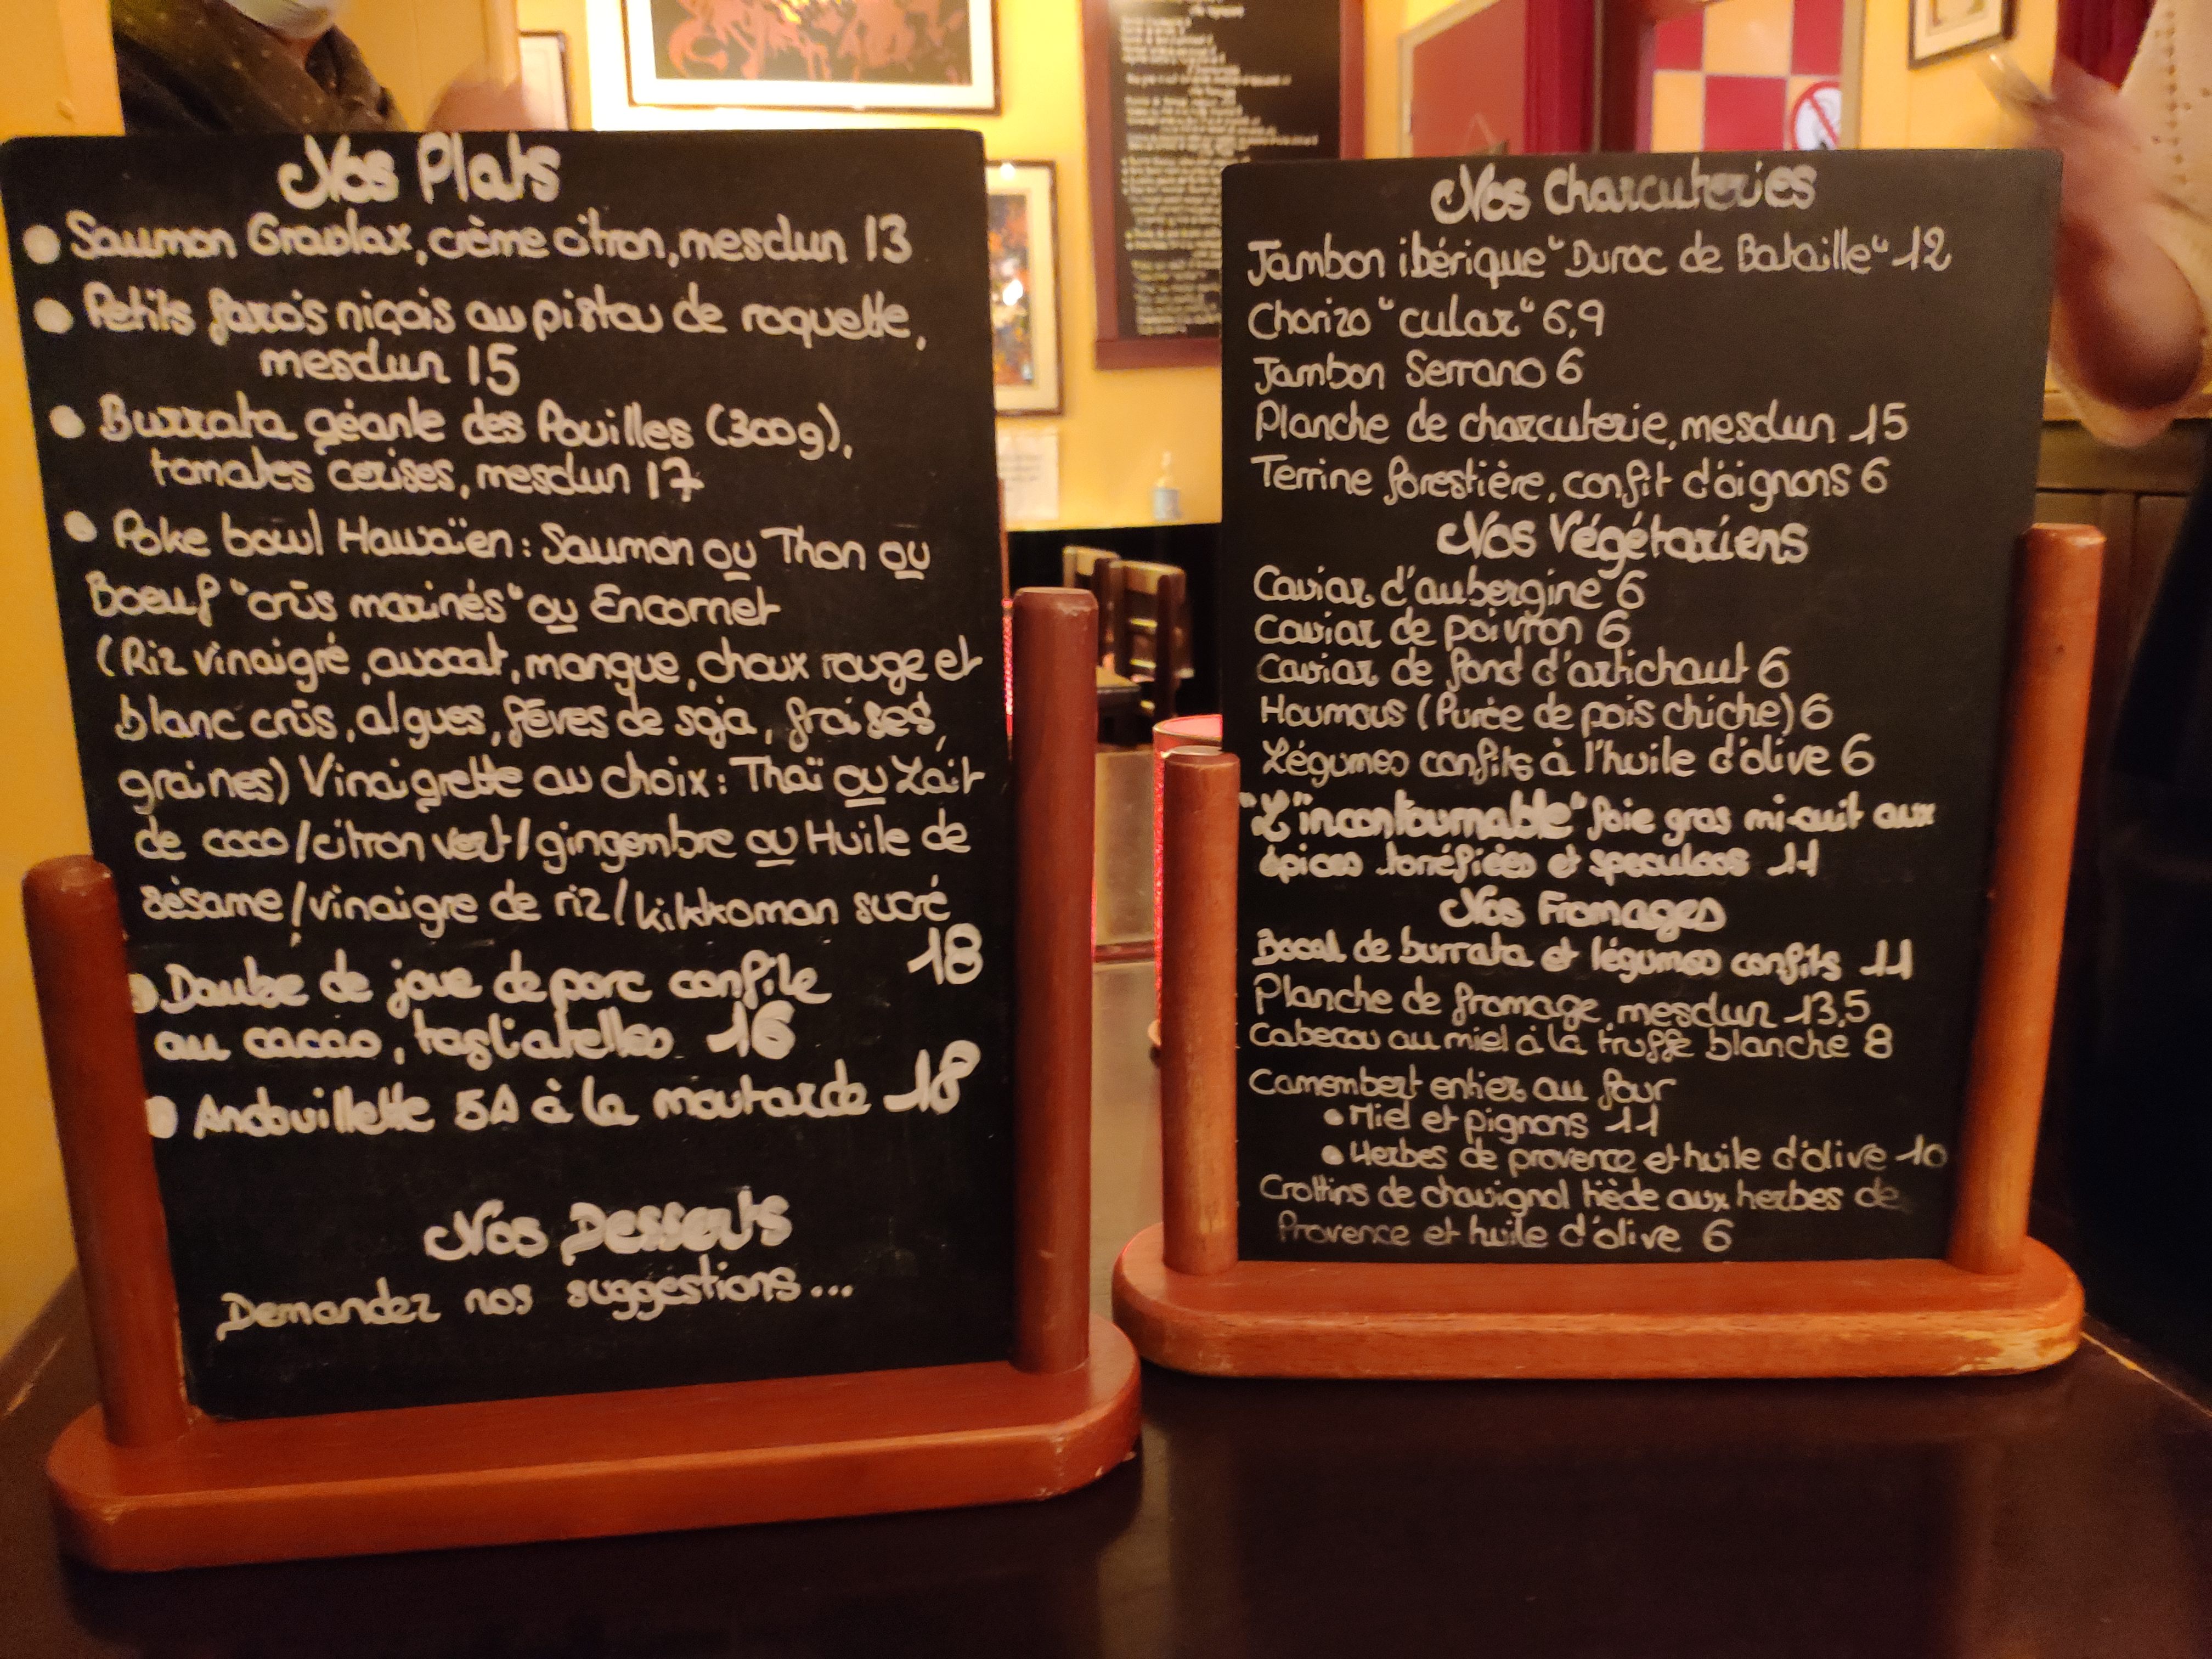 Nos Plats
• Saumon Gravlax, crème citron, mesclun 13
• Petits farcis niçois au pistou de roquette,
mesclun 15
• Burrata géante des Pouilles (300g),
tomates cerises, mesclun 17
• Poke bowl Hawaïen : Saumon ou Thon ou
Boeuf "crûs marinés" ou Encornet
(Riz vinaigré, avocat, mangue, choux rouge et
blanc crûs, algues, fêves de soja, fraises,
graines) Vinaigrette au choix : Thaï ou Lait
de coco/citron vert/gingembre ou Huile de
sésame/vinaigre de riz/kikkoman sucré
18
• Daube de joue de porc confite
au cacao, tagliatelles 16
• Andouillette 5A à la moutarde 18
Nos Desserts
Demandez nos suggestions...
Nos Charcuteries
Jambon ibérique "Duroc de Bataille" 12
Chorizo "cular" 6,9
Jambon Serrano 6
Planche de charcuterie, mesclun 15
Terrine forestière, confit d'oignons 6
Nos Végétariens
Caviar d'aubergine 6
Caviar de poivron 6
Caviar de fond d'artichaut 6
Houmous (Purée de pois chiche) 6
Légumes confits à l'huile d'olive 6
"L'incontournable" foie gras mi-cuit aux
épices torréfiées et speculoos 11
Nos Fromages
Bocal de burrata et légumes confits 11
Planche de fromage, mesclun 13,5
Cabecou au miel à la truffe blanche 8
Camembert entier au four
• Miel et pignons 11
• Herbes de provence et huile d'olive 10
Crottins de chavignol tiède aux herbes de
Provence et huile d'olive 6